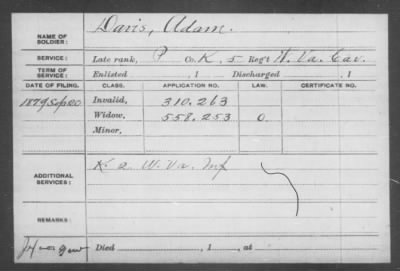 NAME OF SOLDIER: Davis, Adam.
SERVICE: Late rank, P Co. K, 5 Reg't W. Va. Cav.
TERM OF SERVICE: Enlisted , 1 Discharged , 1
DATE OF FILING. CLASS. APPLICATION NO. LAW. CERTIFICATE NO.
1879 Sep 20 Invalid, 310.263
Widow, 558.253 O.
Minor,
ADDITIONAL SERVICES: K. 2 W. Va. Inf
REMARKS:
Died , 1 , at